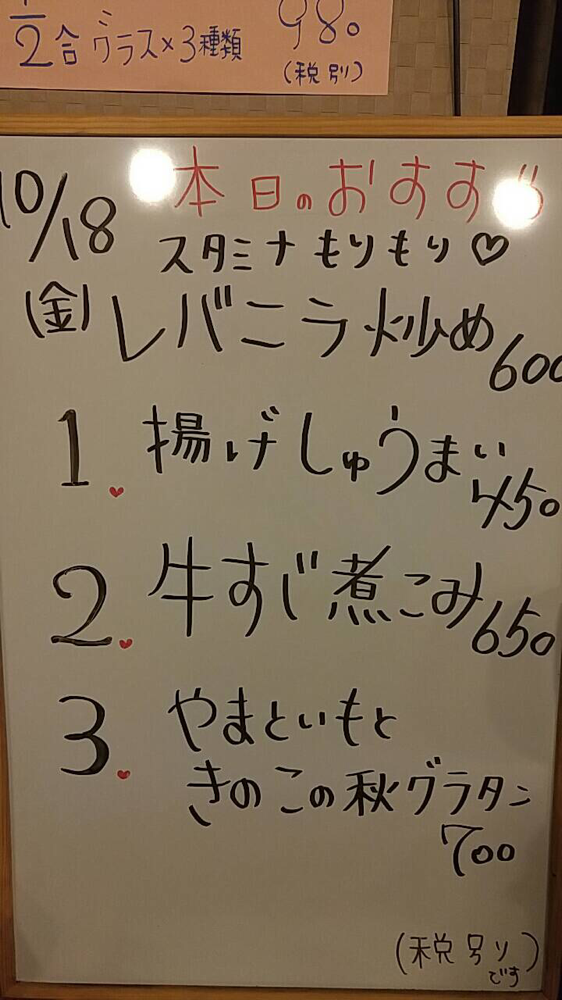 1/2合グラス×3種類 980
(税別)
10/18
(金)
本日のおすすめ
スタミナもりもり♡
レバニラ炒め 600
1. 揚げしゅうまい 450
2. 牛すじ煮こみ 650
3. やまといもと
きのこの秋グラタン
700
(税別)
です